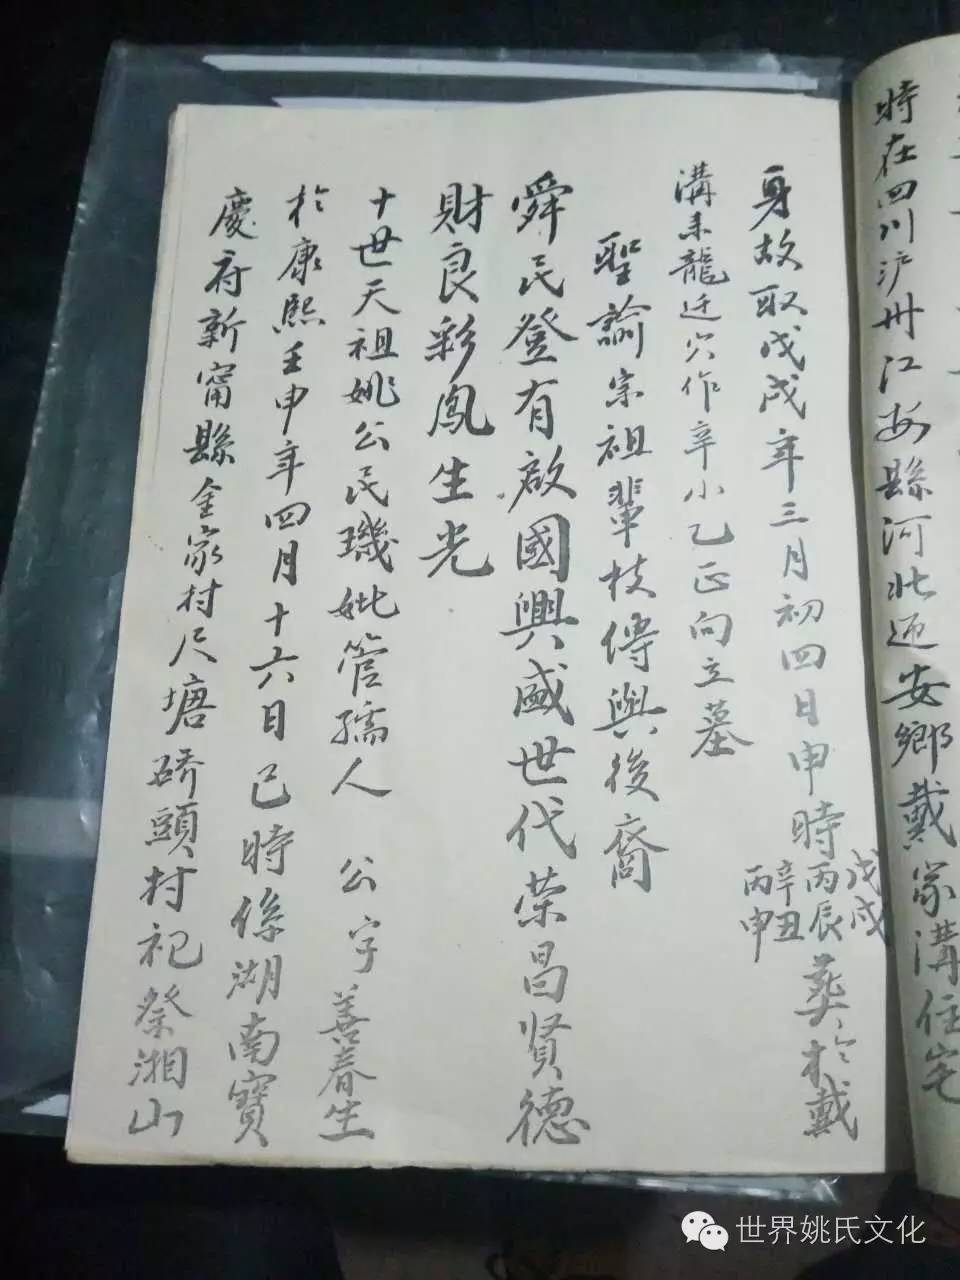 時在四川沪州江安縣河北迎安鄉戴家溝住宅
身故取戊戌年三月初四日申時戊戌丙辰辛丑丙申葬於戴
溝来龍迁穴作辛小乙正向立墓
聖諭宗祖輩枝傳與後裔
舜民登有啟國興盛世代荣昌贤德
財良彩鳳生光
十世天祖姚公民璣妣管孺人 公字善春生
於康熙壬申年四月十六日巳時係湖南寶
慶府新甯縣金家村尺塘硚頭村祀祭湘山
世界姚氏文化